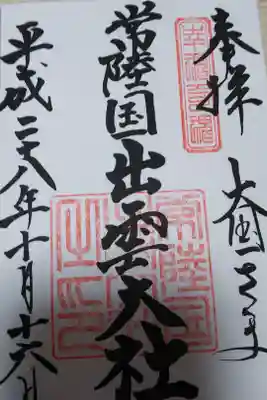 奉拝
大国さま
常陸国出雲大社
平成二十八年十月十六日